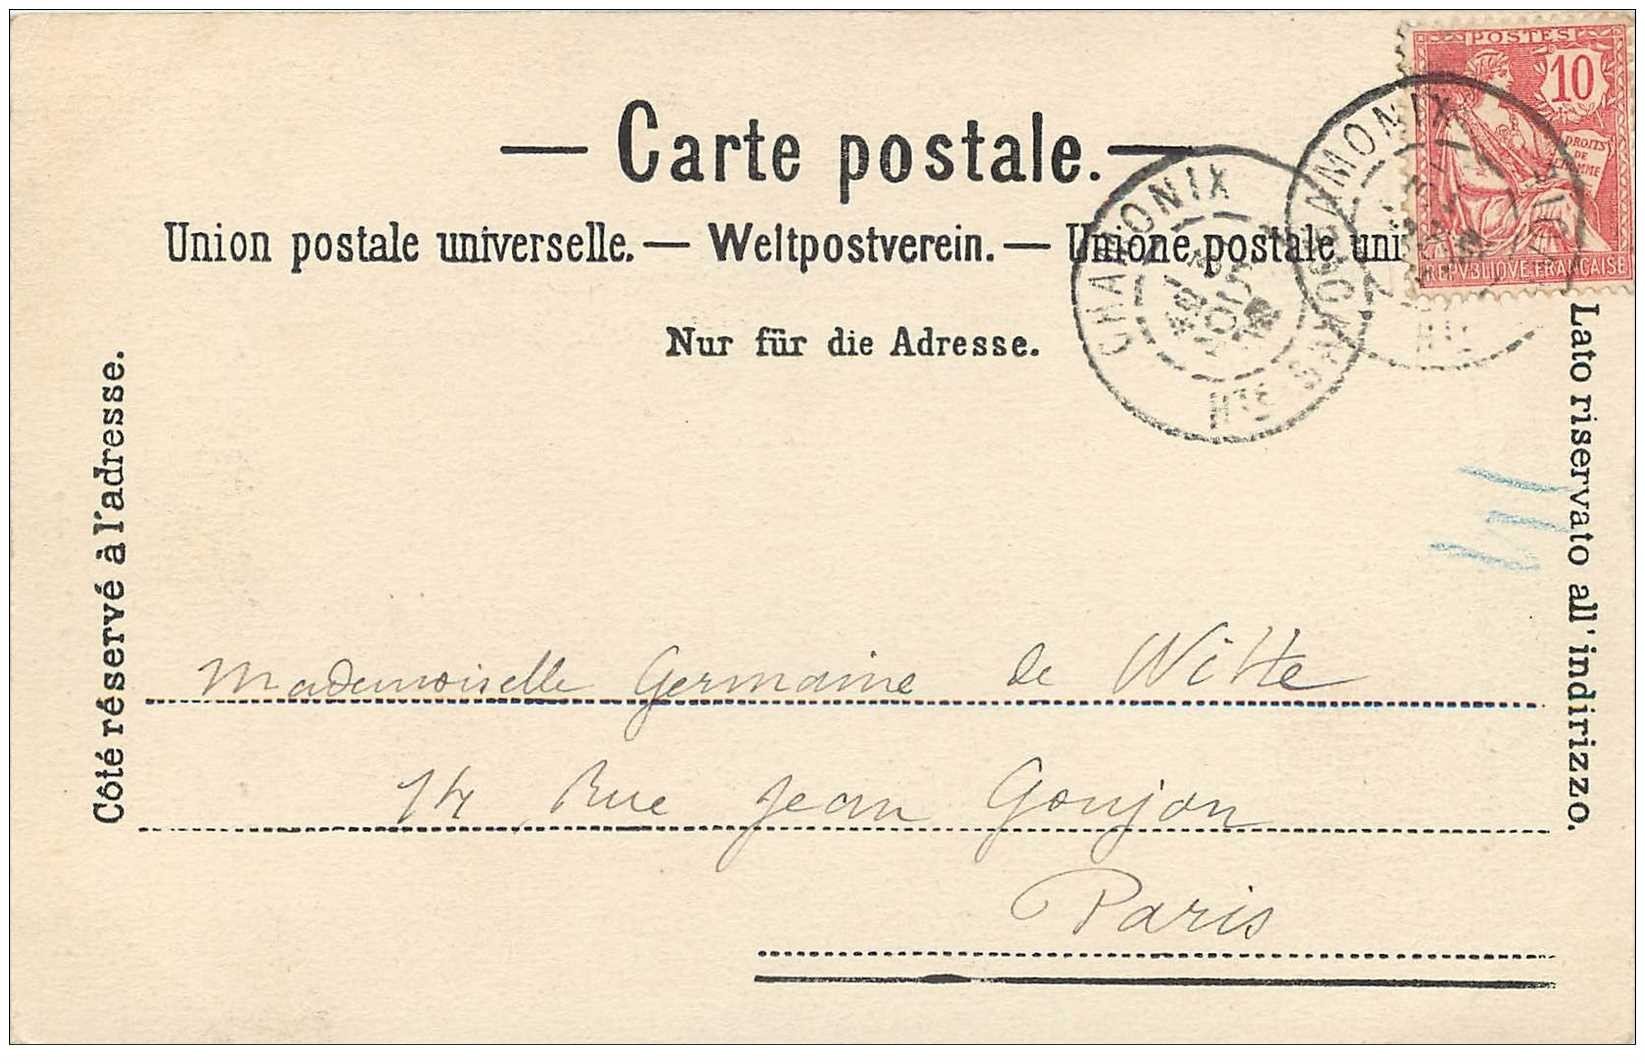 POSTES
10
DROITS
DE
REPVBLIQVE FRANÇAISE
— Carte postale. —
CHAMONIX
CHAMONIX
Hte
Union postale universelle. — Weltpostverein. — Unione postale uni
Nur für die Adresse.
Côté réservé à l'adresse.
Lato riservato all' indirizzo.
Mademoiselle Germaine de Witte
14 Rue Jean Goujon
Paris